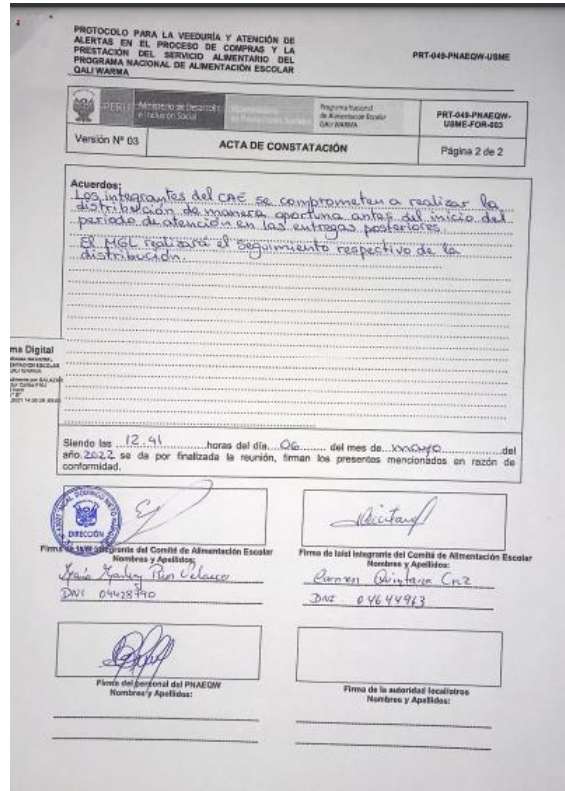 PROTOCOLO PARA LA VEEDURÍA Y ATENCIÓN DE
ALERTAS EN EL PROCESO DE COMPRAS Y LA
PRESTACIÓN DEL SERVICIO ALIMENTARIO DEL
PROGRAMA NACIONAL DE ALIMENTACIÓN ESCOLAR
QALI WARMA
PRT-049-PNAEQW-USME
PERÚ
Ministerio de Desarrollo
e Inclusión Social
Programa Nacional
de Alimentación Escolar
QALI WARMA
PRT-049-PNAEQW-
USME-FOR-003
Versión Nº 03
ACTA DE CONSTATACIÓN
Página 2 de 2
Acuerdos:
Los integrantes del CAE se comprometen a realizar la
distribución de manera oportuna antes del inicio del
periodo de atención en las entregas posteriores.
El MGL realizará el seguimiento respectivo de la
distribución.
ma Digital
Siendo las 12.41 horas del día 06 del mes de mayo del
año 2022 se da por finalizada la reunión, firman los presentes mencionados en razón de
conformidad.
DIRECCIÓN
Firma de integrante del Comité de Alimentación Escolar
Nombres y Apellidos:
Velasco
DNI 04428790
Firma de integrante del Comité de Alimentación Escolar
Nombres y Apellidos:
Carmen Quintana Cruz
DNI 04644963
Firma del personal del PNAEQW
Nombres y Apellidos:
Firma de la autoridad local/otros
Nombres y Apellidos: